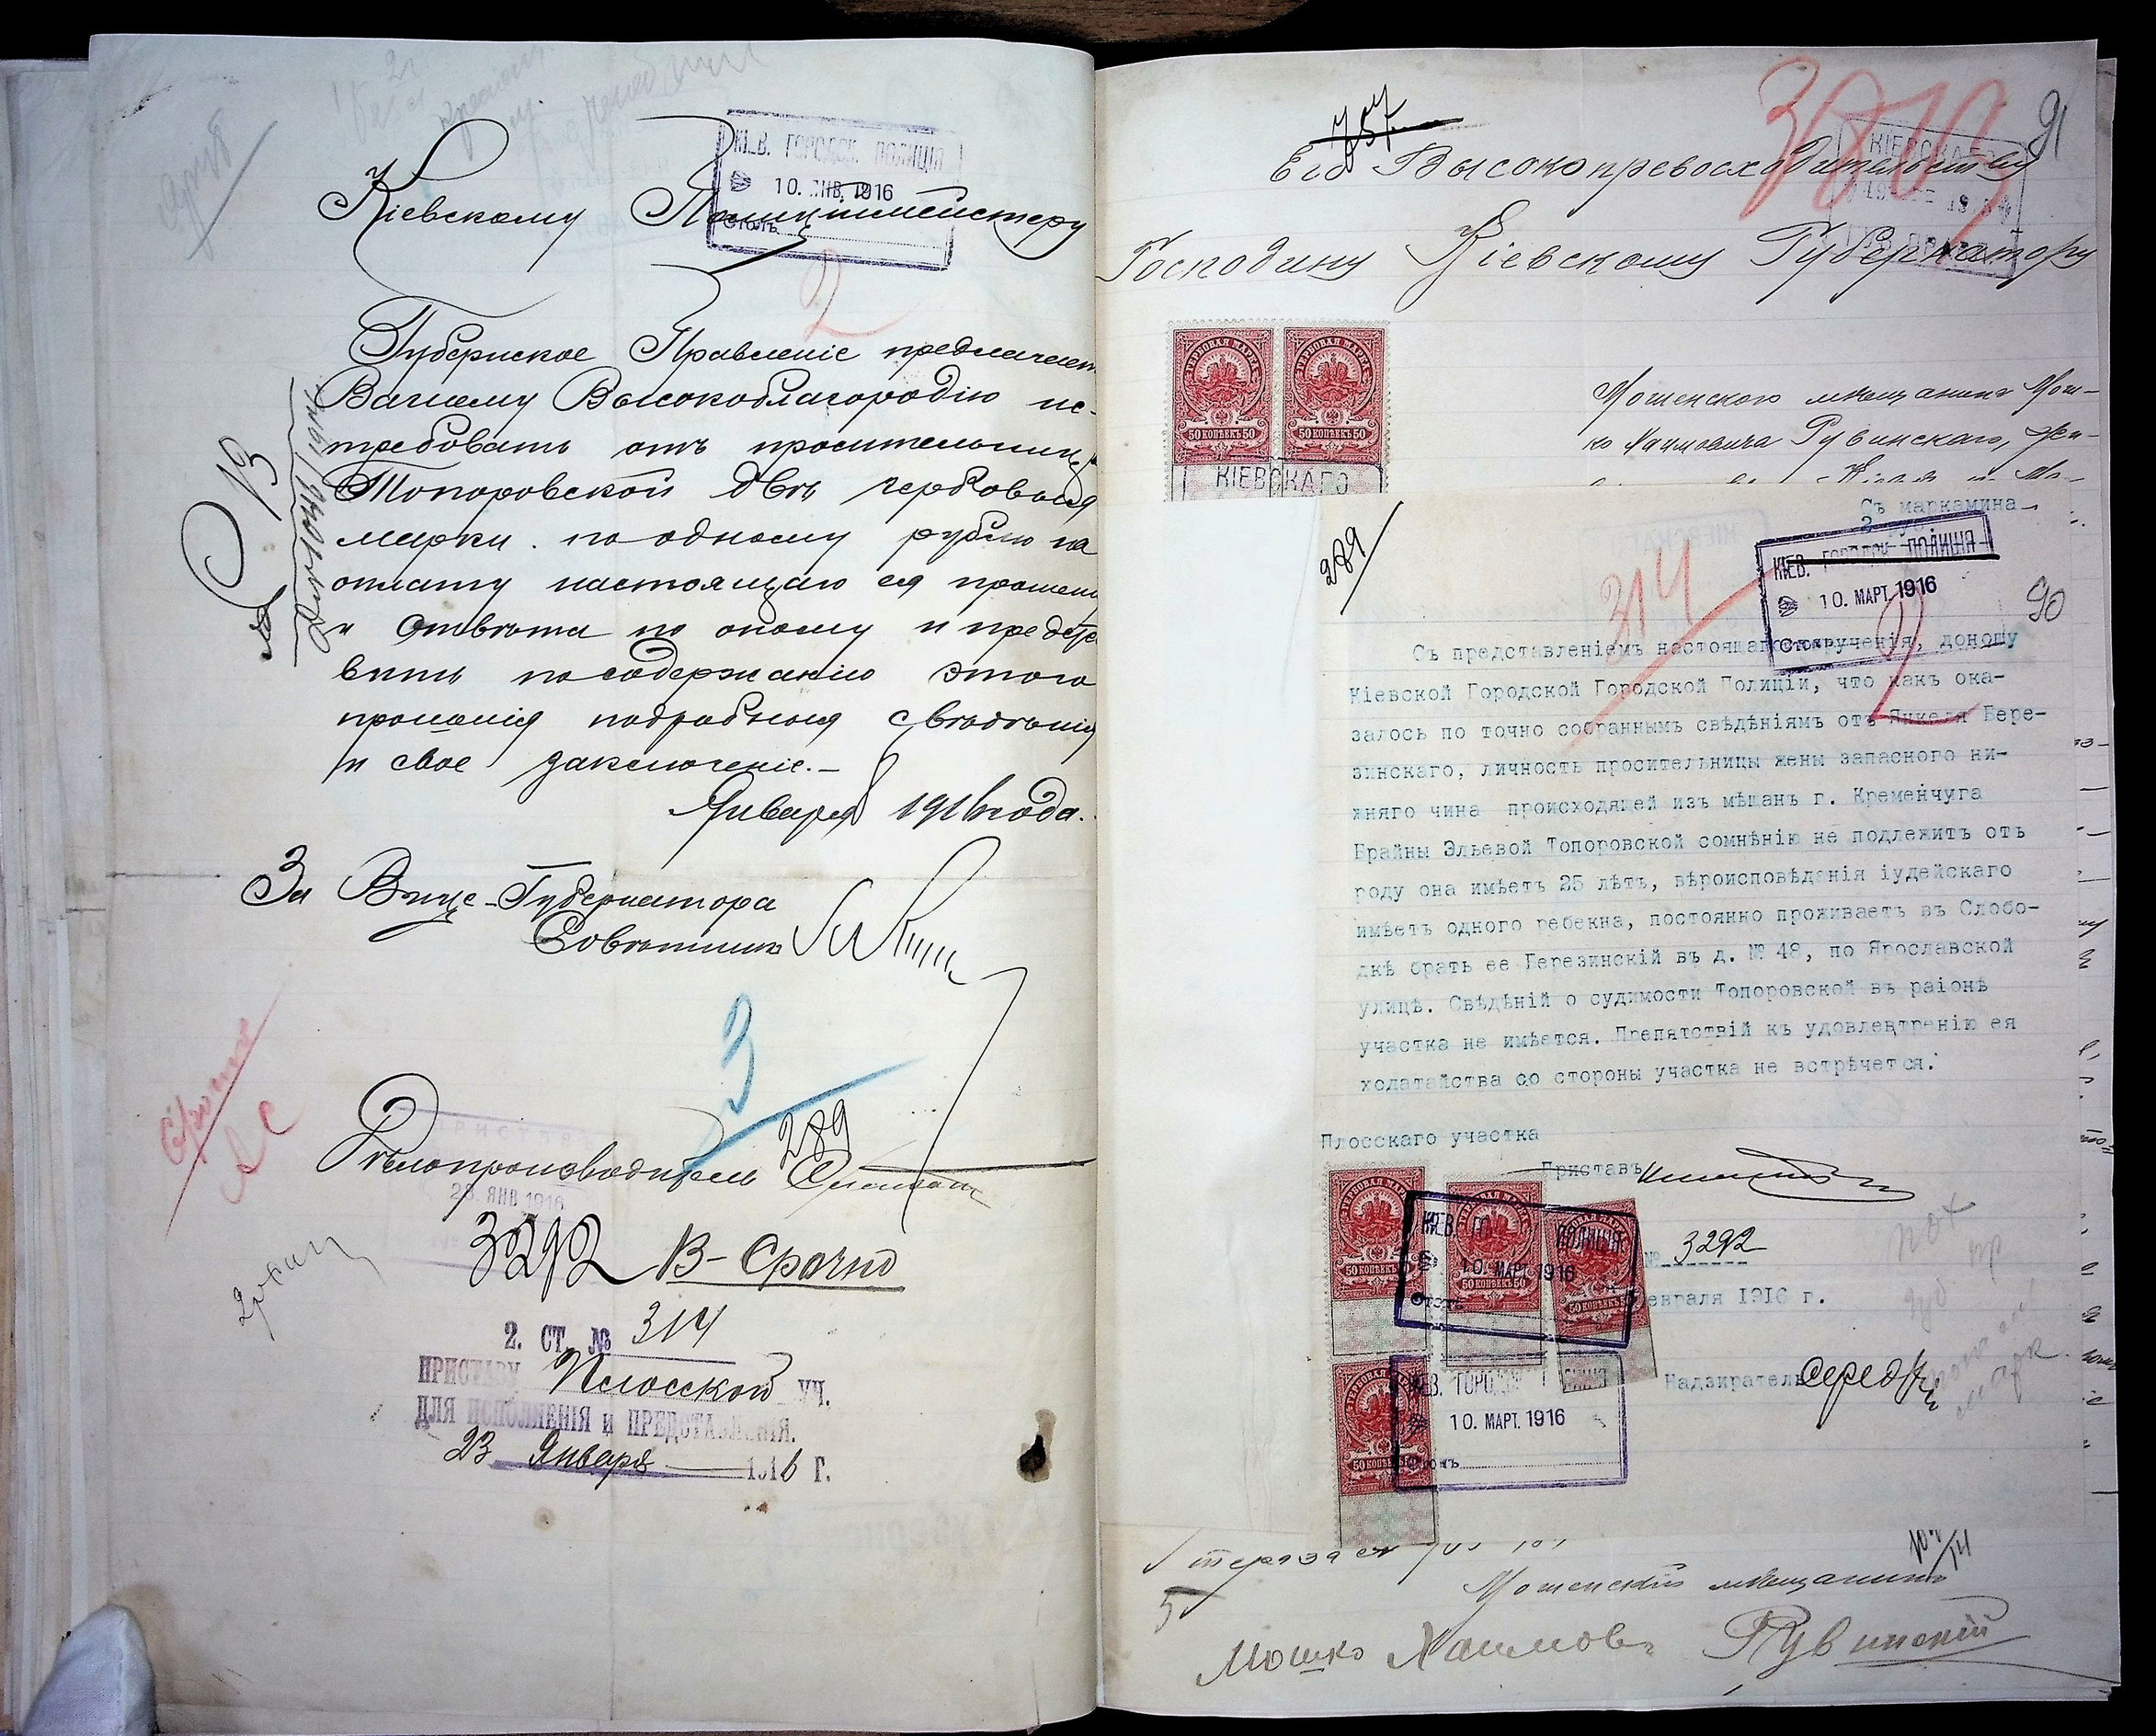 КІЕВ. ГОРОДСК. ПОЛИЦІЯ
10. ЯНВ. 1916
Столъ
Кіевскому Полицмейстеру
2
Губернское Правленіе предлагает
Вашему Высокоблагородію ис-
требовать отъ просительницы
Топоровской двѣ гербовыя
марки по одному рублю на
оплату настоящаго ея прошен
и отвѣта по оному и предста
вить по содержанію этого
прошенія подробныя свѣдѣнія
и свое заключеніе.-
Января 1916 года.
За Вице-Губернатора
Совѣтникъ
Срочно
3
289
Дѣлопроизводитель
ПРИСТАВА
23. ЯНВ 1916
3292 В- Срочно
2. СТ. № 314
ПРИСТАВУ Плосской УЧ.
ДЛЯ ИСПОЛНЕНІЯ и ПРЕДСТАВЛЕНІЯ.
23 Января 1916 Г.
757
3819
91
Его Высокопревосходительству
Господину Кіевскому Губернатору
ГЕРБОВАЯ МАРКА ГЕРБОВАЯ МАРКА
50 КОПѢЕКЪ 50 50 КОПѢЕКЪ 50
КІЕВСКАГО
Мошенского мѣщанина Мош-
ко Хаимовича Рувинскаго, жи-
Съ марками на
2
289
314
КІЕВ. ГОРОДСК. ПОЛИЦІЯ
10. МАРТ. 1916
Столъ
90
Съ представленіемъ настоящаго порученія, доношу
Кіевской Городской Городской Полиціи, что какъ ока-
залось по точно собраннымъ свѣдѣніямъ отъ Янкеля Бере-
зинскаго, личность просительницы жены запасного ни-
жняго чина происходящей изъ мѣщанъ г. Кременчуга
Брайны Эльевой Топоровской сомнѣнію не подлежитъ отъ
роду она имѣетъ 25 лѣтъ, вѣроисповѣданія іудейскаго
имѣетъ одного ребекна, постоянно проживаетъ въ Слобо-
дкѣ братъ ее Герезинскій въ д. № 48, по Ярославской
улицѣ. Свѣдѣній о судимости Топоровской въ раіонѣ
участка не имѣется. Препятствій къ удовлевтренію ея
ходатайства со стороны участка не встрѣчется.
Плосскаго участка
Приставъ
ГЕРБОВАЯ МАРКА
50 КОПѢЕКЪ 50
КІЕВ. ГО ПОЛИЦІЯ
10. МАРТ. 1916
№ 3292
евраля 1916 г.
Надзиратель Серед
КІЕВ. ГОРОДС
10. МАРТ. 1916
Столъ
Мошенскій мѣщанинъ
Мошко Хаимовъ Рувинскій